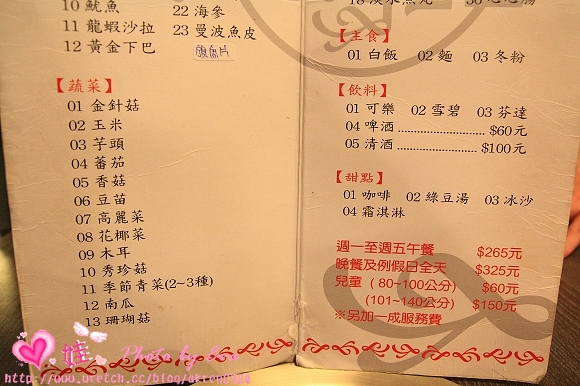 10 魷魚
11 龍蝦沙拉
12 黃金下巴
22 海參
23 曼波魚皮
【蔬菜】
01 金針菇
02 玉米
03 芋頭
04 蕃茄
05 香菇
06 豆苗
07 高麗菜
08 花椰菜
09 木耳
10 秀珍菇
11 季節青菜(2~3種)
12 南瓜
13 珊瑚菇
【主食】
01 白飯 02 麵 03 冬粉
【飲料】
01 可樂 02 雪碧 03 芬達
04 啤酒 ........................ $60元
05 清酒 ........................ $100元
【甜點】
01 咖啡 02 綠豆湯 03 冰沙
04 霜淇淋
週一至週五午餐 $265元
晚餐及例假日全天 $325元
兒童 ( 80~100公分) $60元
(101~140公分) $150元
※另加一成服務費